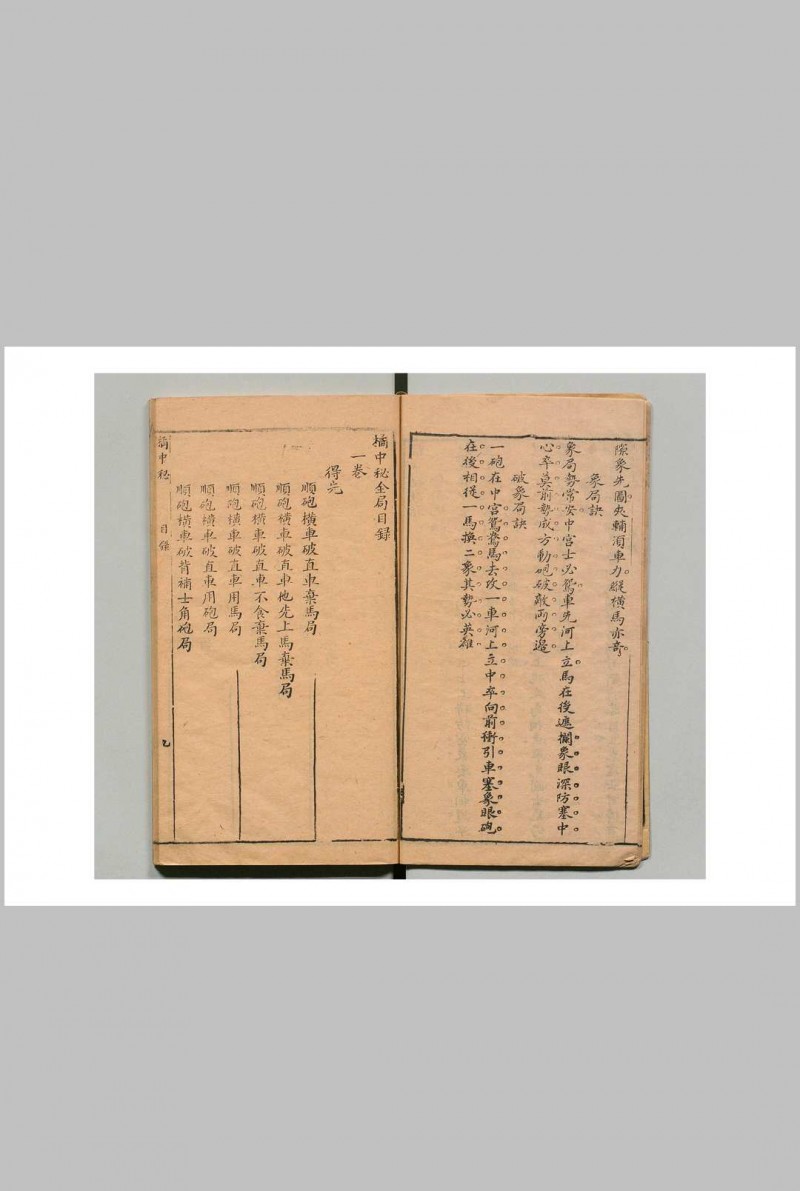 隙象先圖夾輔須車力縱橫馬亦奇
象局訣
象局勢常安中宮士必鴛車先河上立馬在後遮攔象眼深防塞中
心卒莫前勢成方動砲破敵兩旁邊
破象局訣
一砲在中宮鴛鴦馬去攻一車河上立中卒向前衝引車塞象眼砲
在後相從一馬換二象其勢必英雄
橘中秘全局目錄
一卷
得先
順砲橫車破直車棄馬局
順砲橫車破直車他先上馬棄馬局
順砲橫車破直車不食棄馬局
順砲橫車破直車用馬局
順砲橫車破直車用砲局
順砲橫車破背補士角砲局
橘中秘 目錄 乙